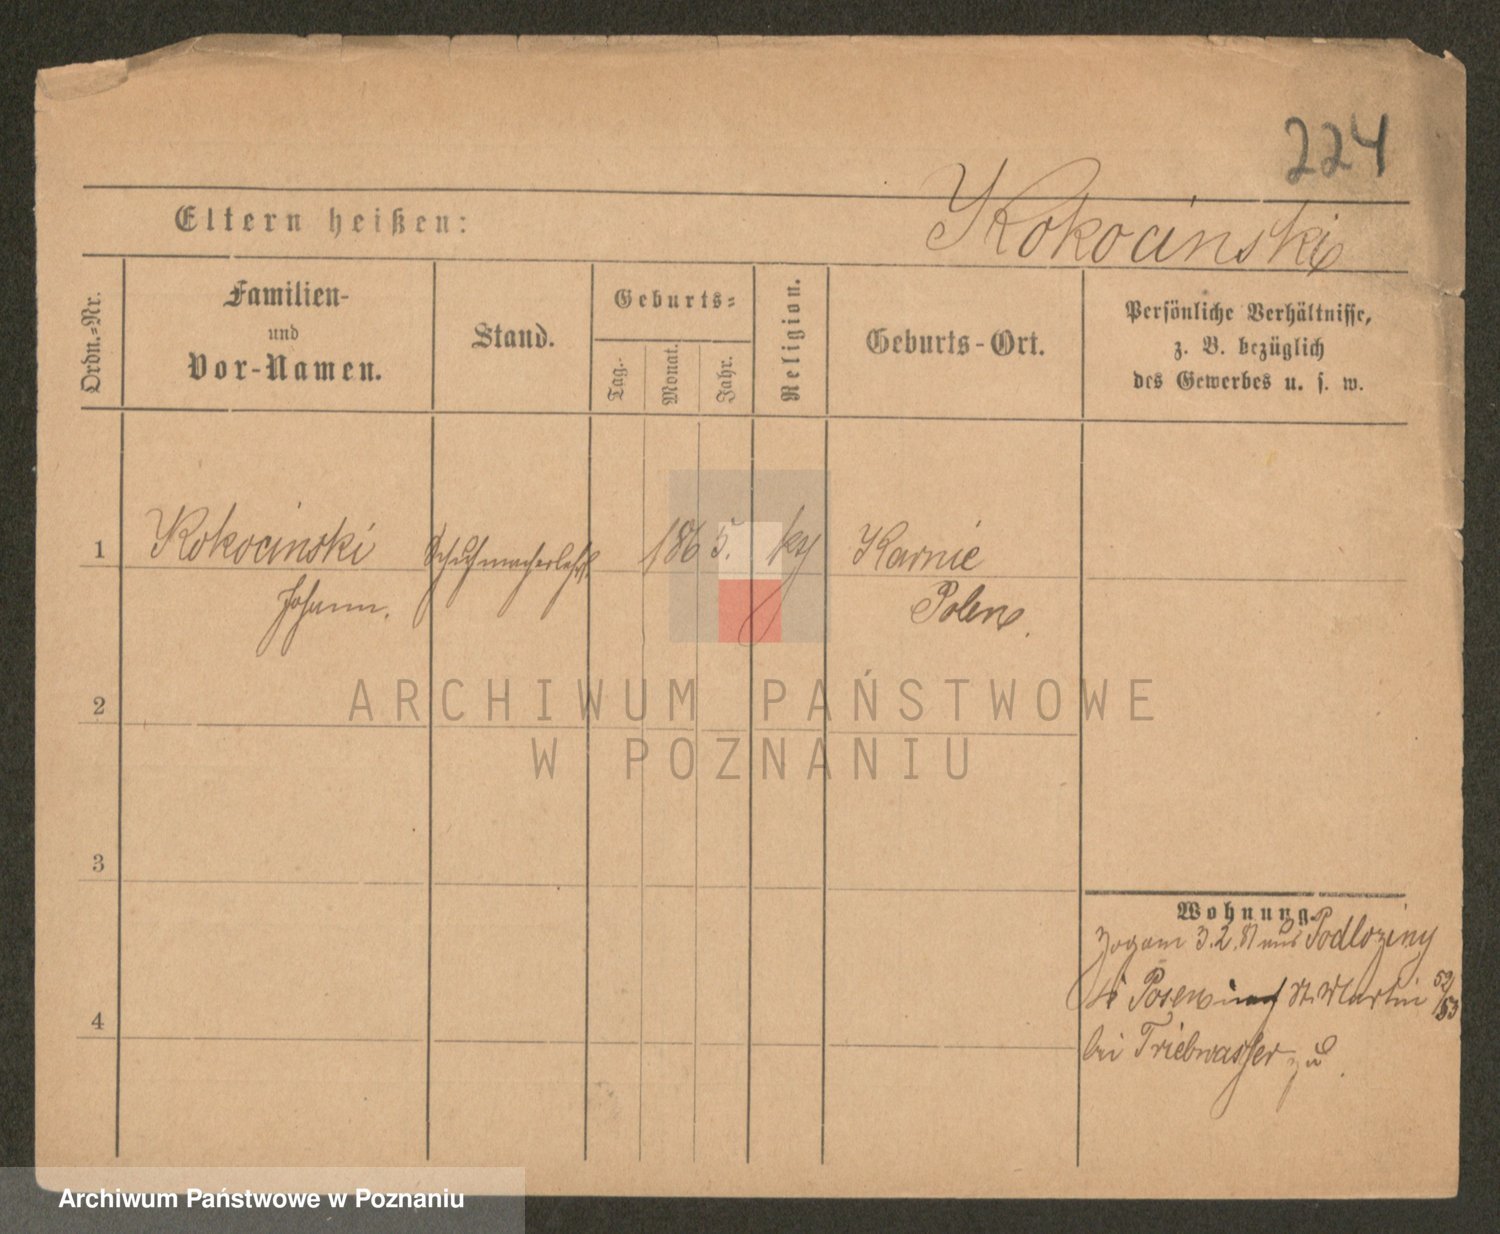 224
Eltern heißen:
Kokocinski
Ordn.=Nr.
Familien-
und
Vor-Namen.
Stand.
Geburts=
Tag.
Monat.
Jahr.
Religion.
Geburts-Ort.
Persönliche Verhältnisse,
z. B. bezüglich
des Gewerbes u. s. w.
1
Kokocinski
Johann.
1865.
Karnie
Polen.
2
ARCHIWUM PAŃSTWOWE
W POZNANIU
3
Wohnung.
Zog am 3.2.81 aus Podloziny
Posen St. Martin 52/53
4
bei Triebwasser zu.
Archiwum Państwowe w Poznaniu